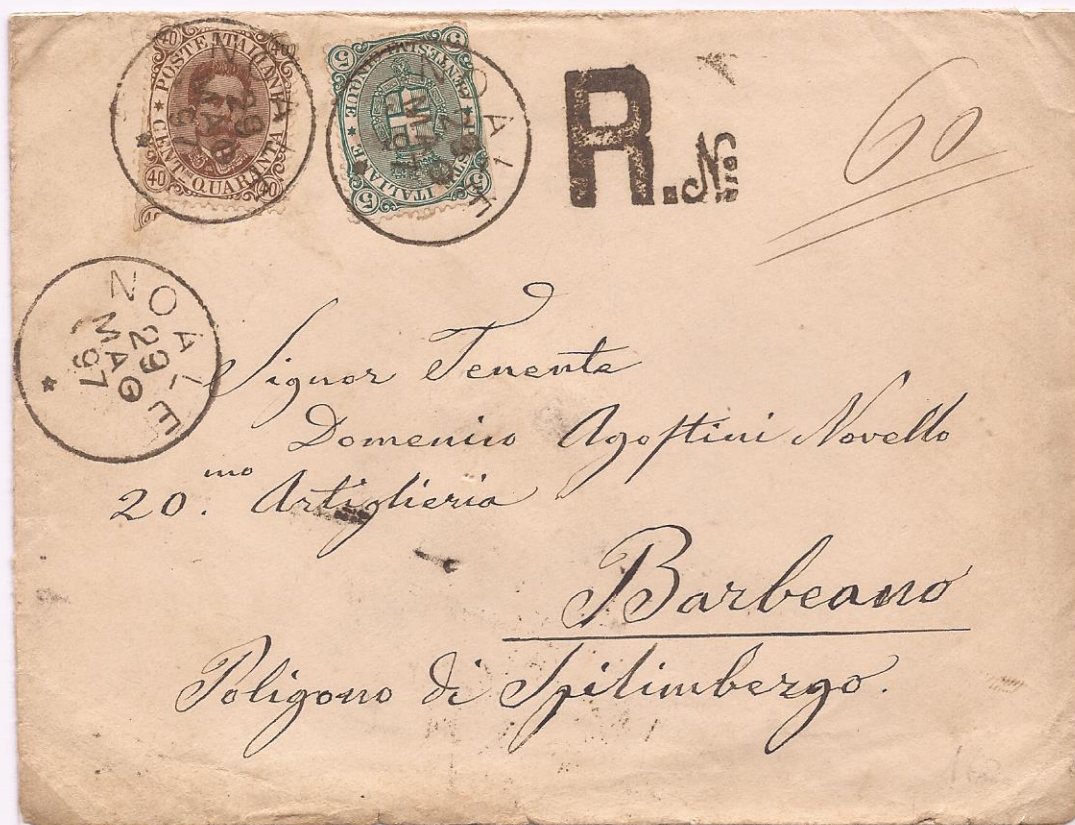 POSTE ITALIANE
CENT.MI QUARANTA
40
5 CENTESIMI CINQUE 5
5 POSTE ITALIANE 5
NOALE
29
MAG
97
NOALE
29
MAG
97
R. No
60
NOALE
29
MAG
97
Signor Tenente
Domenico Agostini Novello
20.mo Artiglieria
Barbeano
Poligono di Spilimbergo.